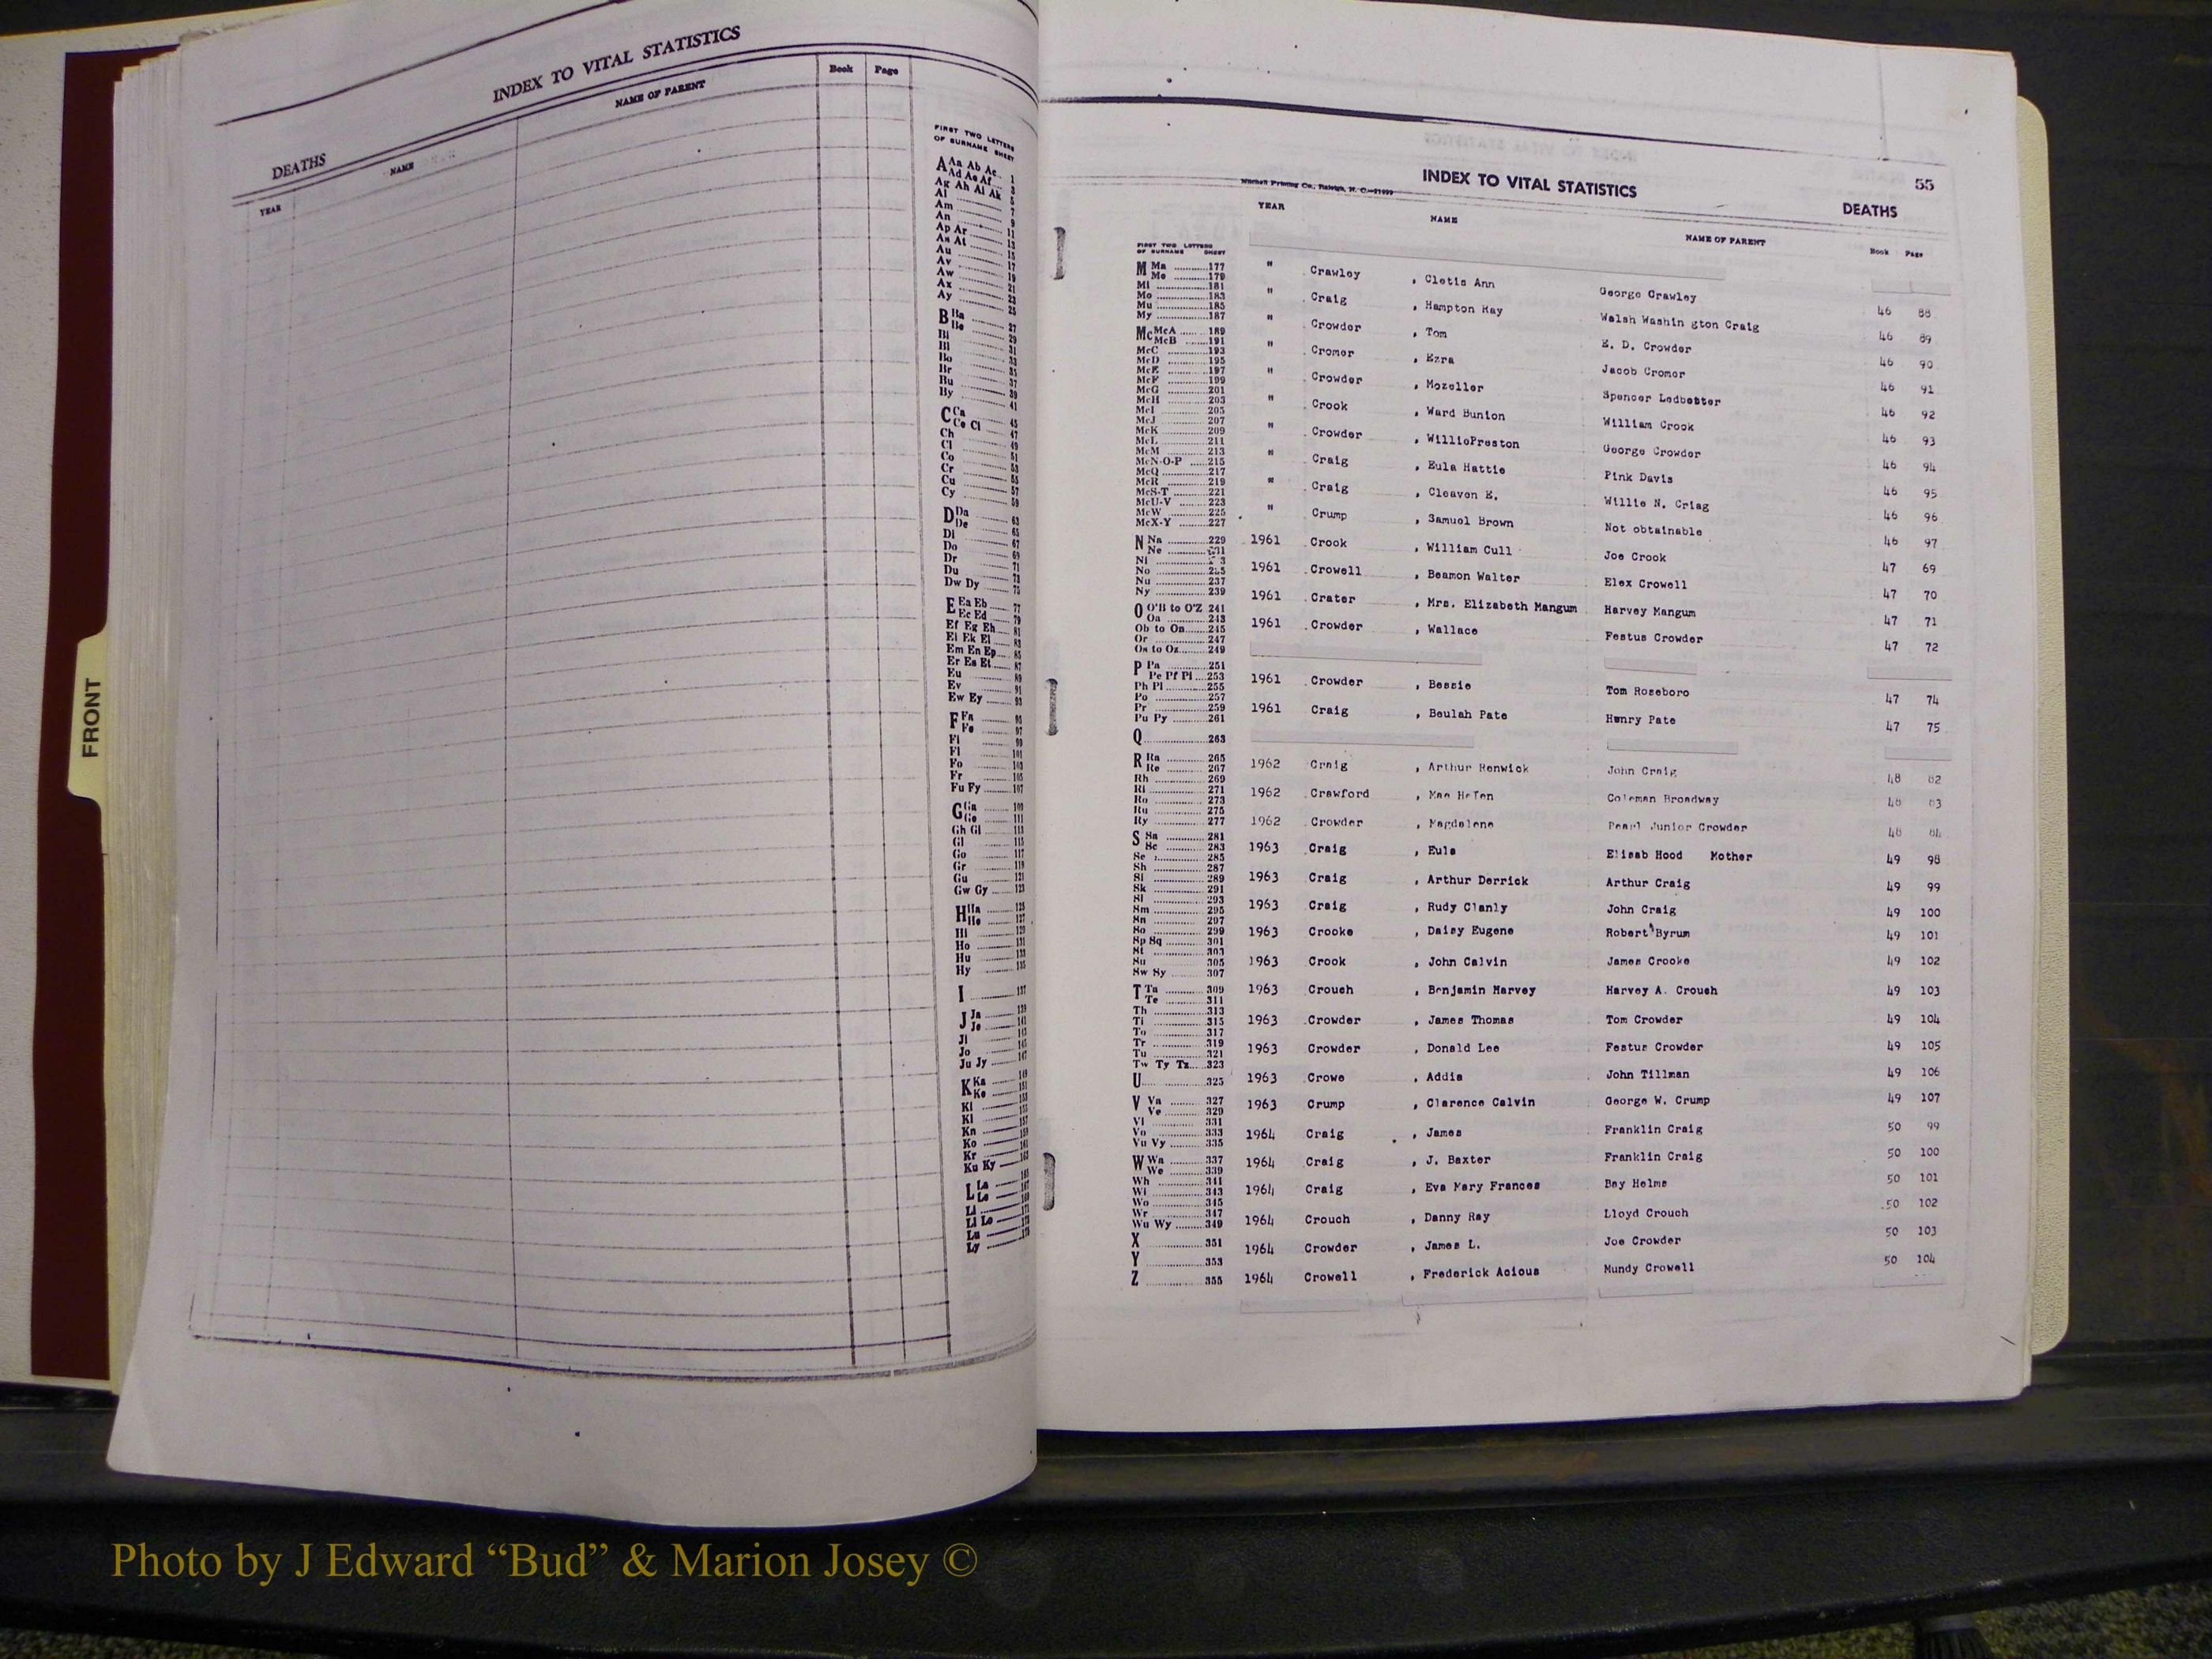 FRONT
INDEX TO VITAL STATISTICS
DEATHS
YEAR NAME NAME OF PARENT Book Page
FIRST TWO LETTERS
OF SURNAME SHEET
A Aa Ab Ac 1
Ad Ae Af 3
Ag Ah Ai Ak 5
Al 7
Am 9
An 11
Ap Ar 13
As At 15
Au 17
Av 19
Aw 21
Ax 23
Ay 25
B Ba 27
Be 29
Bi 31
Bl 33
Bo 35
Br 37
Bu 39
By 41
C Ca 45
Ce Ci 47
Ch 49
Cl 51
Co 53
Cr 55
Cu 57
Cy 59
D Da 63
De 65
Di 67
Do 69
Dr 71
Du 73
Dw Dy 75
E Ea Eb 77
Ec Ed 79
Ef Eg Eh 81
Ei Ek El 83
Em En Ep 85
Er Es Et 87
Eu 89
Ev 91
Ew Ey 93
F Fa 95
Fe 97
Fi 99
Fl 101
Fo 103
Fr 105
Fu Fy 107
G Ga 109
Ge 111
Gh Gi 113
Gl 115
Go 117
Gr 119
Gu 121
Gw Gy 123
H Ha 125
He 127
Hi 129
Ho 131
Hu 133
Hy 135
I 137
J Ja 139
Je 141
Ji
Jo 145
Ju Jy 147
K Ka 149
Ke 151
Ki
Kl
Kn
Ko
Kr
Ku Ky
L La
Le
Li
Ll Lo
Lu
Ly
55
Mitchell Printing Co., Raleigh, N. C.
INDEX TO VITAL STATISTICS
DEATHS
YEAR NAME NAME OF PARENT Book Page
FIRST TWO LETTERS
OF SURNAME SHEET
M Ma 177
Me 179
Mi 181
Mo 183
Mu 185
My 187
Mc McA 189
McB 191
McC 193
McD 195
McE 197
McF 199
McG 201
McH 203
McI 205
McJ 207
McK 209
McL 211
McM 213
McN-O-P 215
McQ 217
McR 219
McS-T 221
McU-V 223
McW 225
McX-Y 227
N Na 229
Ne
Ni
No
Nu 237
Ny 239
O O'B to O'Z 241
Oa 243
Ob to On 245
Or 247
Os to Oz 249
P Pa 251
Pe Pf Pi 253
Ph Pl 255
Po 257
Pr 259
Pu Py 261
Q 263
R Ra 265
Re 267
Rh 269
Ri 271
Ro 273
Ru 275
Ry 277
S Sa 281
Sc 283
Se 285
Sh 287
Si 289
Sk 291
Sl 293
Sm 295
Sn 297
So 299
Sp Sq 301
St 303
Su 305
Sw Sy 307
T Ta 309
Te 311
Th 313
Ti 315
To 317
Tr 319
Tu 321
Tw Ty Tz 323
U 325
V Va 327
Ve 329
Vi 331
Vo 333
Vu Vy 335
W Wa 337
We 339
Wh 341
Wi 343
Wo 345
Wr 347
Wu Wy 349
X 351
Y 353
Z 355
" Crawley , Cletis Ann George Crawley 46 88
" Craig , Hampton Ray Walsh Washin gton Craig 46 89
" Crowder , Tom E. D. Crowder 46 90
" Cromer , Ezra Jacob Cromer 46 91
" Crowder , Mozeller Spencer Ledbetter 46 92
" Crook , Ward Bunion William Crook 46 93
" Crowder , WilliePreston George Crowder 46 94
" Craig , Eula Hattie Pink Davis 46 95
" Craig , Cleaven E. Willie N. Criag 46 96
" Crump , Samuel Brown Not obtainable 46 97
1961 Crook , William Cull Joe Crook 47 69
1961 Crowell , Beamon Walter Elex Crowell 47 70
1961 Crater , Mrs. Elizabeth Mangum Harvey Mangum 47 71
1961 Crowder , Wallace Festus Crowder 47 72
1961 Crowder , Bessie Tom Roseboro 47 74
1961 Craig , Beulah Pate Henry Pate 47 75
1962 Craig , Arthur Henwick John Craig 48 82
1962 Crawford , Mae Helen Coleman Broadway 48 83
1962 Crowder , Magdalene Pearl Junior Crowder 48 84
1963 Craig , Eula Elisab Hood Mother 49 98
1963 Craig , Arthur Derrick Arthur Craig 49 99
1963 Craig , Rudy Clanly John Craig 49 100
1963 Crooke , Daisy Eugene Robert Byrum 49 101
1963 Crook , John Calvin James Crooke 49 102
1963 Crouch , Benjamin Harvey Harvey A. Crouch 49 103
1963 Crowder , James Thomas Tom Crowder 49 104
1963 Crowder , Donald Lee Festus Crowder 49 105
1963 Crowe , Addie John Tillman 49 106
1963 Crump , Clarence Calvin George W. Crump 49 107
1964 Craig , James Franklin Craig 50 99
1964 Craig , J. Baxter Franklin Craig 50 100
1964 Craig , Eva Mary Frances Bay Helms 50 101
1964 Crouch , Danny Ray Lloyd Crouch 50 102
1964 Crowder , James L. Joe Crowder 50 103
1964 Crowell , Frederick Acious Mundy Crowell 50 104
Photo by J Edward “Bud” & Marion Josey ©